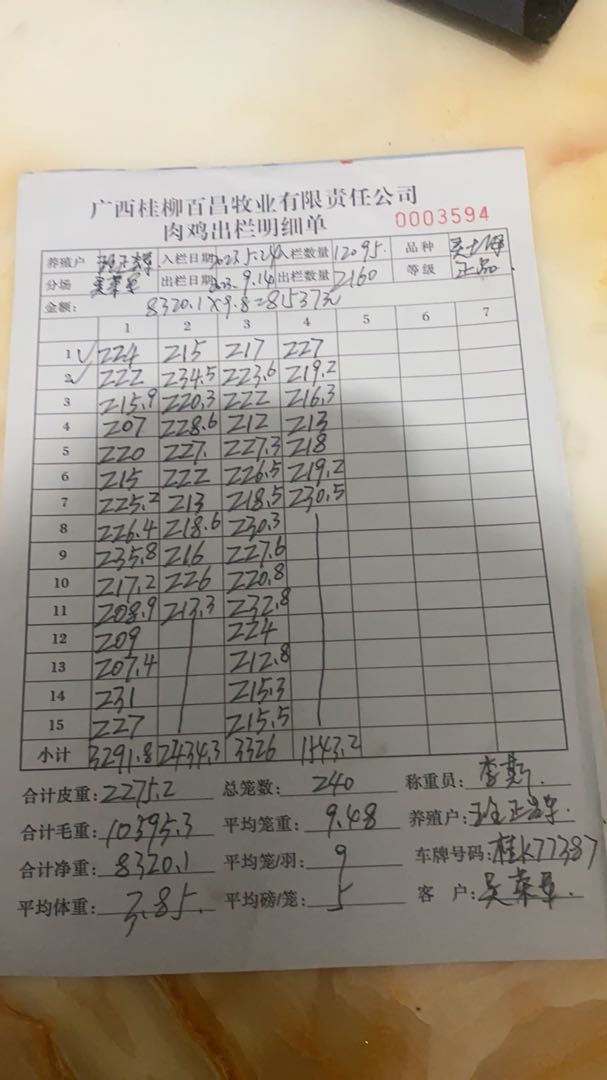 广西桂柳百昌牧业有限责任公司
肉鸡出栏明细单 0003594
养殖户 入栏日期 2023.5.24 入栏数量 12095. 品种
分场 吴荣军 出栏日期 2023.9.14 出栏数量 2160 等级 正品
金额: 8320.1×9.8=81537元
1 2 3 4 5 6 7
1 √ 224 215 217 227
2 √ 222 234.5 223.6 219.2
3 215.9 220.3 222 216.3
4 207 228.6 212 213
5 220 227. 227.3 218
6 215 222 226.5 219.2
7 225.2 213 218.5 230.5
8 226.4 218.6 230.3
9 235.8 216 227.6
10 217.2 226 220.8
11 208.9 213.3 232.8
12 209 224
13 207.4 212.8
14 231 215.3
15 227 215.5
小计 3291.8 2434.3 3326 1543.2
合计皮重: 2275.2 总笼数: 240 称重员:
合计毛重: 10395.3 平均笼重: 9.48 养殖户:
合计净重: 8320.1 平均笼/羽: 9 车牌号码: 桂K77387
平均体重: 3.85. 平均磅/笼: 5 客 户: 吴荣军.